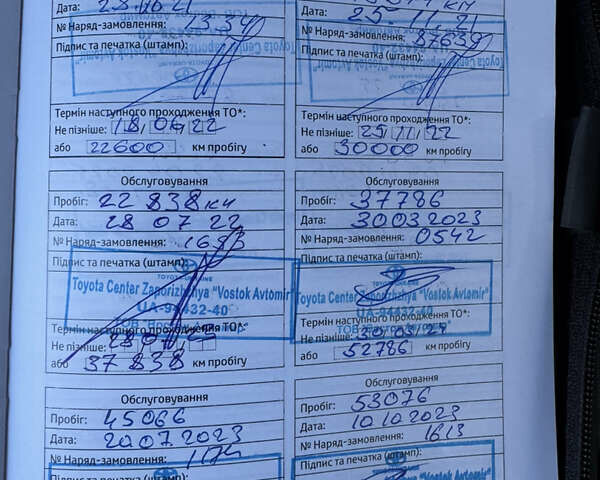 Дата:
№ Наряд-замовлення: 1334
Підпис та печатка (штамп):
Термін наступного проходження ТО*:
Не пізніше: 18 06 22
або 22600 км пробігу
Дата: 25.11.21
№ Наряд-замовлення: 37639
Підпис та печатка (штамп):
Термін наступного проходження ТО*:
Не пізніше: 25 11 22
або 30000 км пробігу
Обслуговування
Пробіг: 22 838 км
Дата: 28 07 22
№ Наряд-замовлення: 1693
Підпис та печатка (штамп):
Toyota Center Zaporizhzhya "Vostok Avtomir"
UA-94432-40
Термін наступного проходження ТО*:
Не пізніше:
або 37838 км пробігу
Обслуговування
Пробіг: 37786
Дата: 30 03 2023
№ Наряд-замовлення: 0542
Підпис та печатка (штамп):
Toyota Center Zaporizhzhya "Vostok Avtomir"
UA-94432-40
Термін наступного проходження ТО*:
Не пізніше: 30 03/24
або 52786 км пробігу
Обслуговування
Пробіг: 45066
Дата: 20.07.2023
№ Наряд-замовлення:
Підпис та печатка (штамп):
Обслуговування
Пробіг: 53076
Дата: 10.10.2023
№ Наряд-замовлення: 1613
Підпис та печатка (штамп):